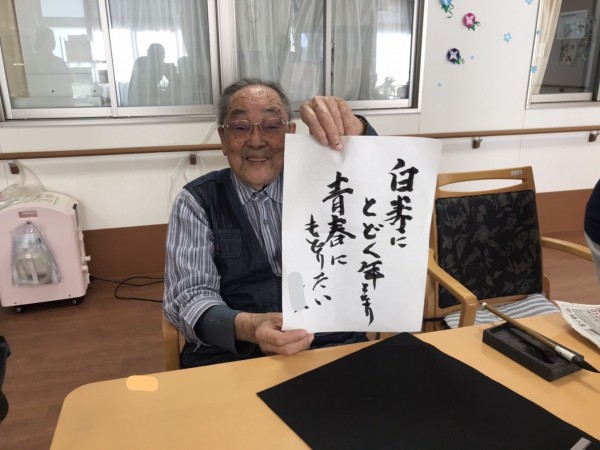 白寿に
とどく年となり
青春に
もどりたい